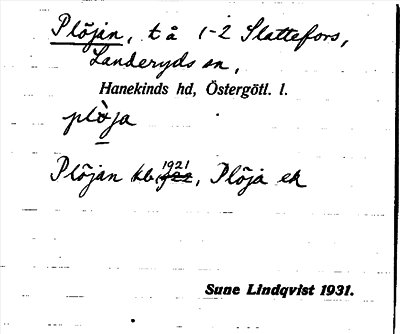 Plöjan, t å 1-2 Slattefors,
Landeryds sn,
Hanekinds hd, Östergötl. l.
plöja
Plöjan kb 1921, Plöja ek
Sune Lindqvist 1931.